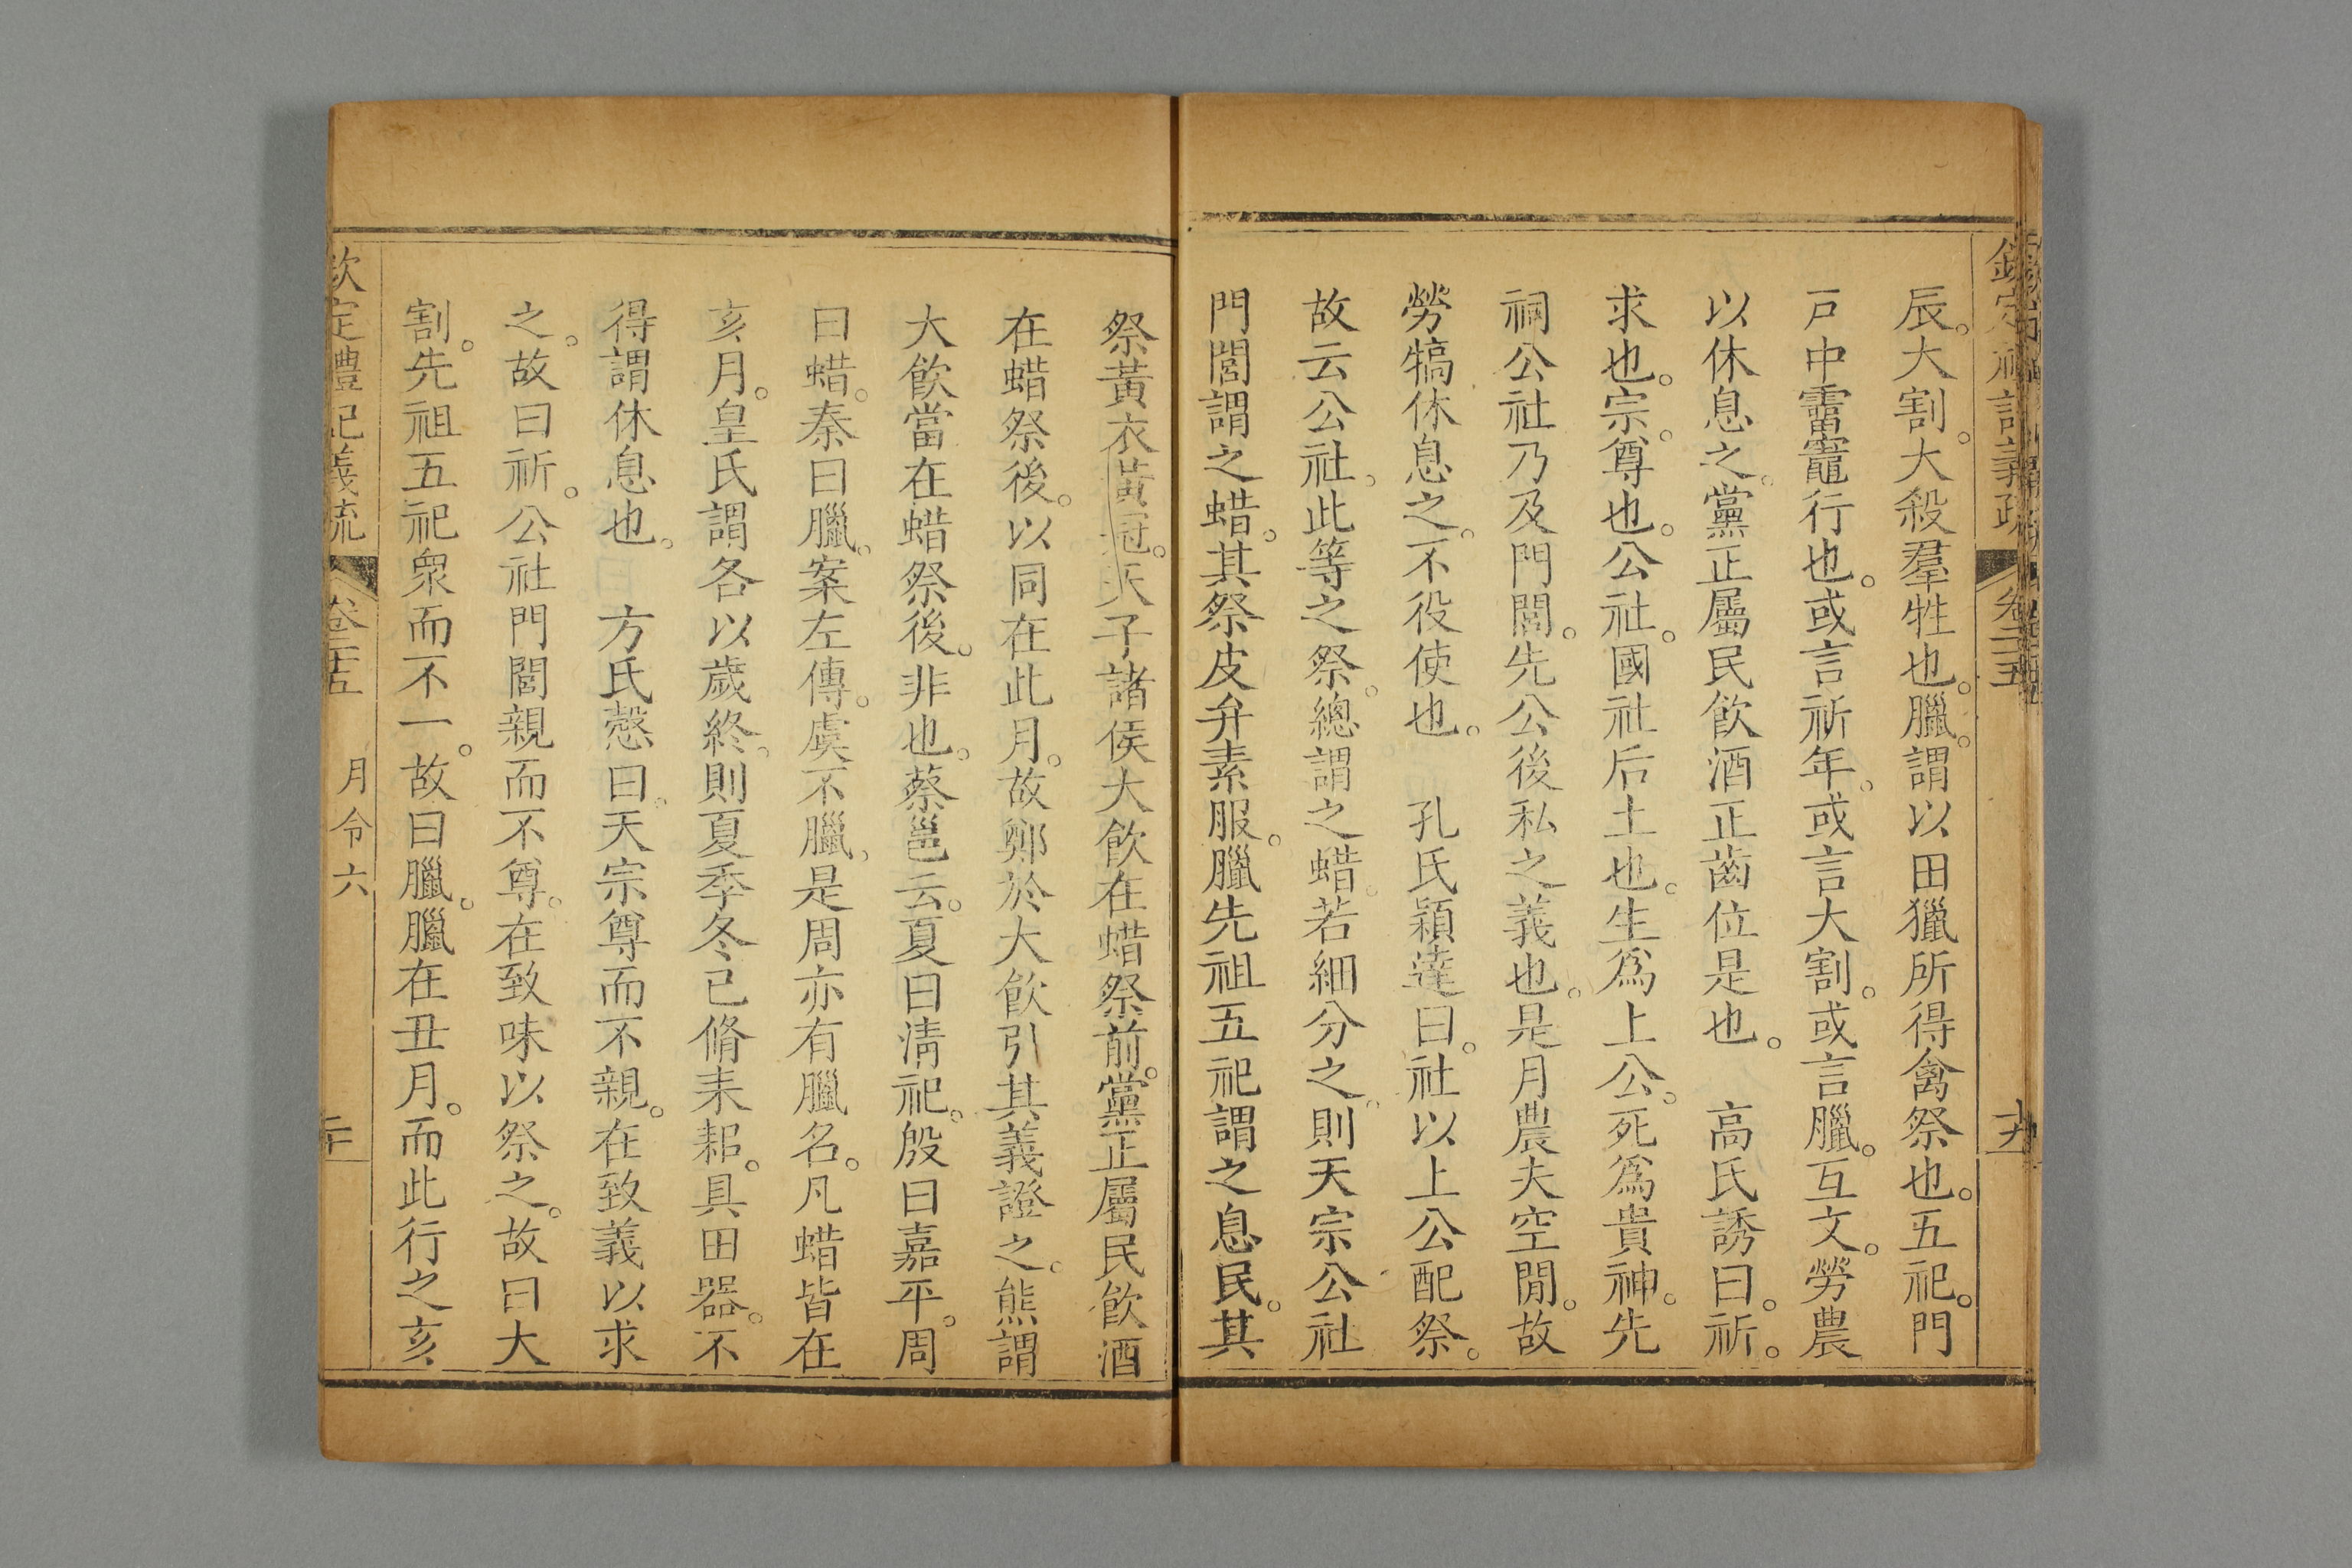 辰。大割。大殺羣牲也。臘。謂以田獵所得禽祭也。五祀。門
戸中霤竈行也。或言祈年。或言大割。或言臘。互文。勞農
以休息之。黨正屬民飲酒正齒位是也。　高氏誘曰。祈。
求也。宗。尊也。公社。國社后土也。生爲上公。死爲貴神。先
祠公社乃及門閭。先公後私之義也。是月農夫空閒。故
勞犒休息之。不役使也。　孔氏穎達曰。社以上公配祭。
故云公社。此等之祭。總謂之蜡。若細分之。則天宗公社
門閭謂之蜡。其祭皮弁素服。臘先祖五祀謂之息民。其
祭黃衣黃冠。天子諸侯大飲在蜡祭前。黨正屬民飲酒
在蜡祭後。以同在此月。故鄭於大飲引其義證之。熊謂
大飲當在蜡祭後。非也。蔡邕云。夏曰淸祀。殷曰嘉平。周
曰蜡。秦曰臘。案左傳。虞不臘。是周亦有臘名。凡蜡皆在
亥月。皇氏謂各以歲終。則夏季冬已脩耒耜。具田器。不
得謂休息也。　方氏慤曰。天宗尊而不親。在致義以求
之。故曰祈。公社門閭親而不尊。在致味以祭之。故曰大
割。先祖五祀衆而不一。故曰臘。臘在丑月。而此行之亥
欽定禮記義疏　卷二十五　月令六　二十